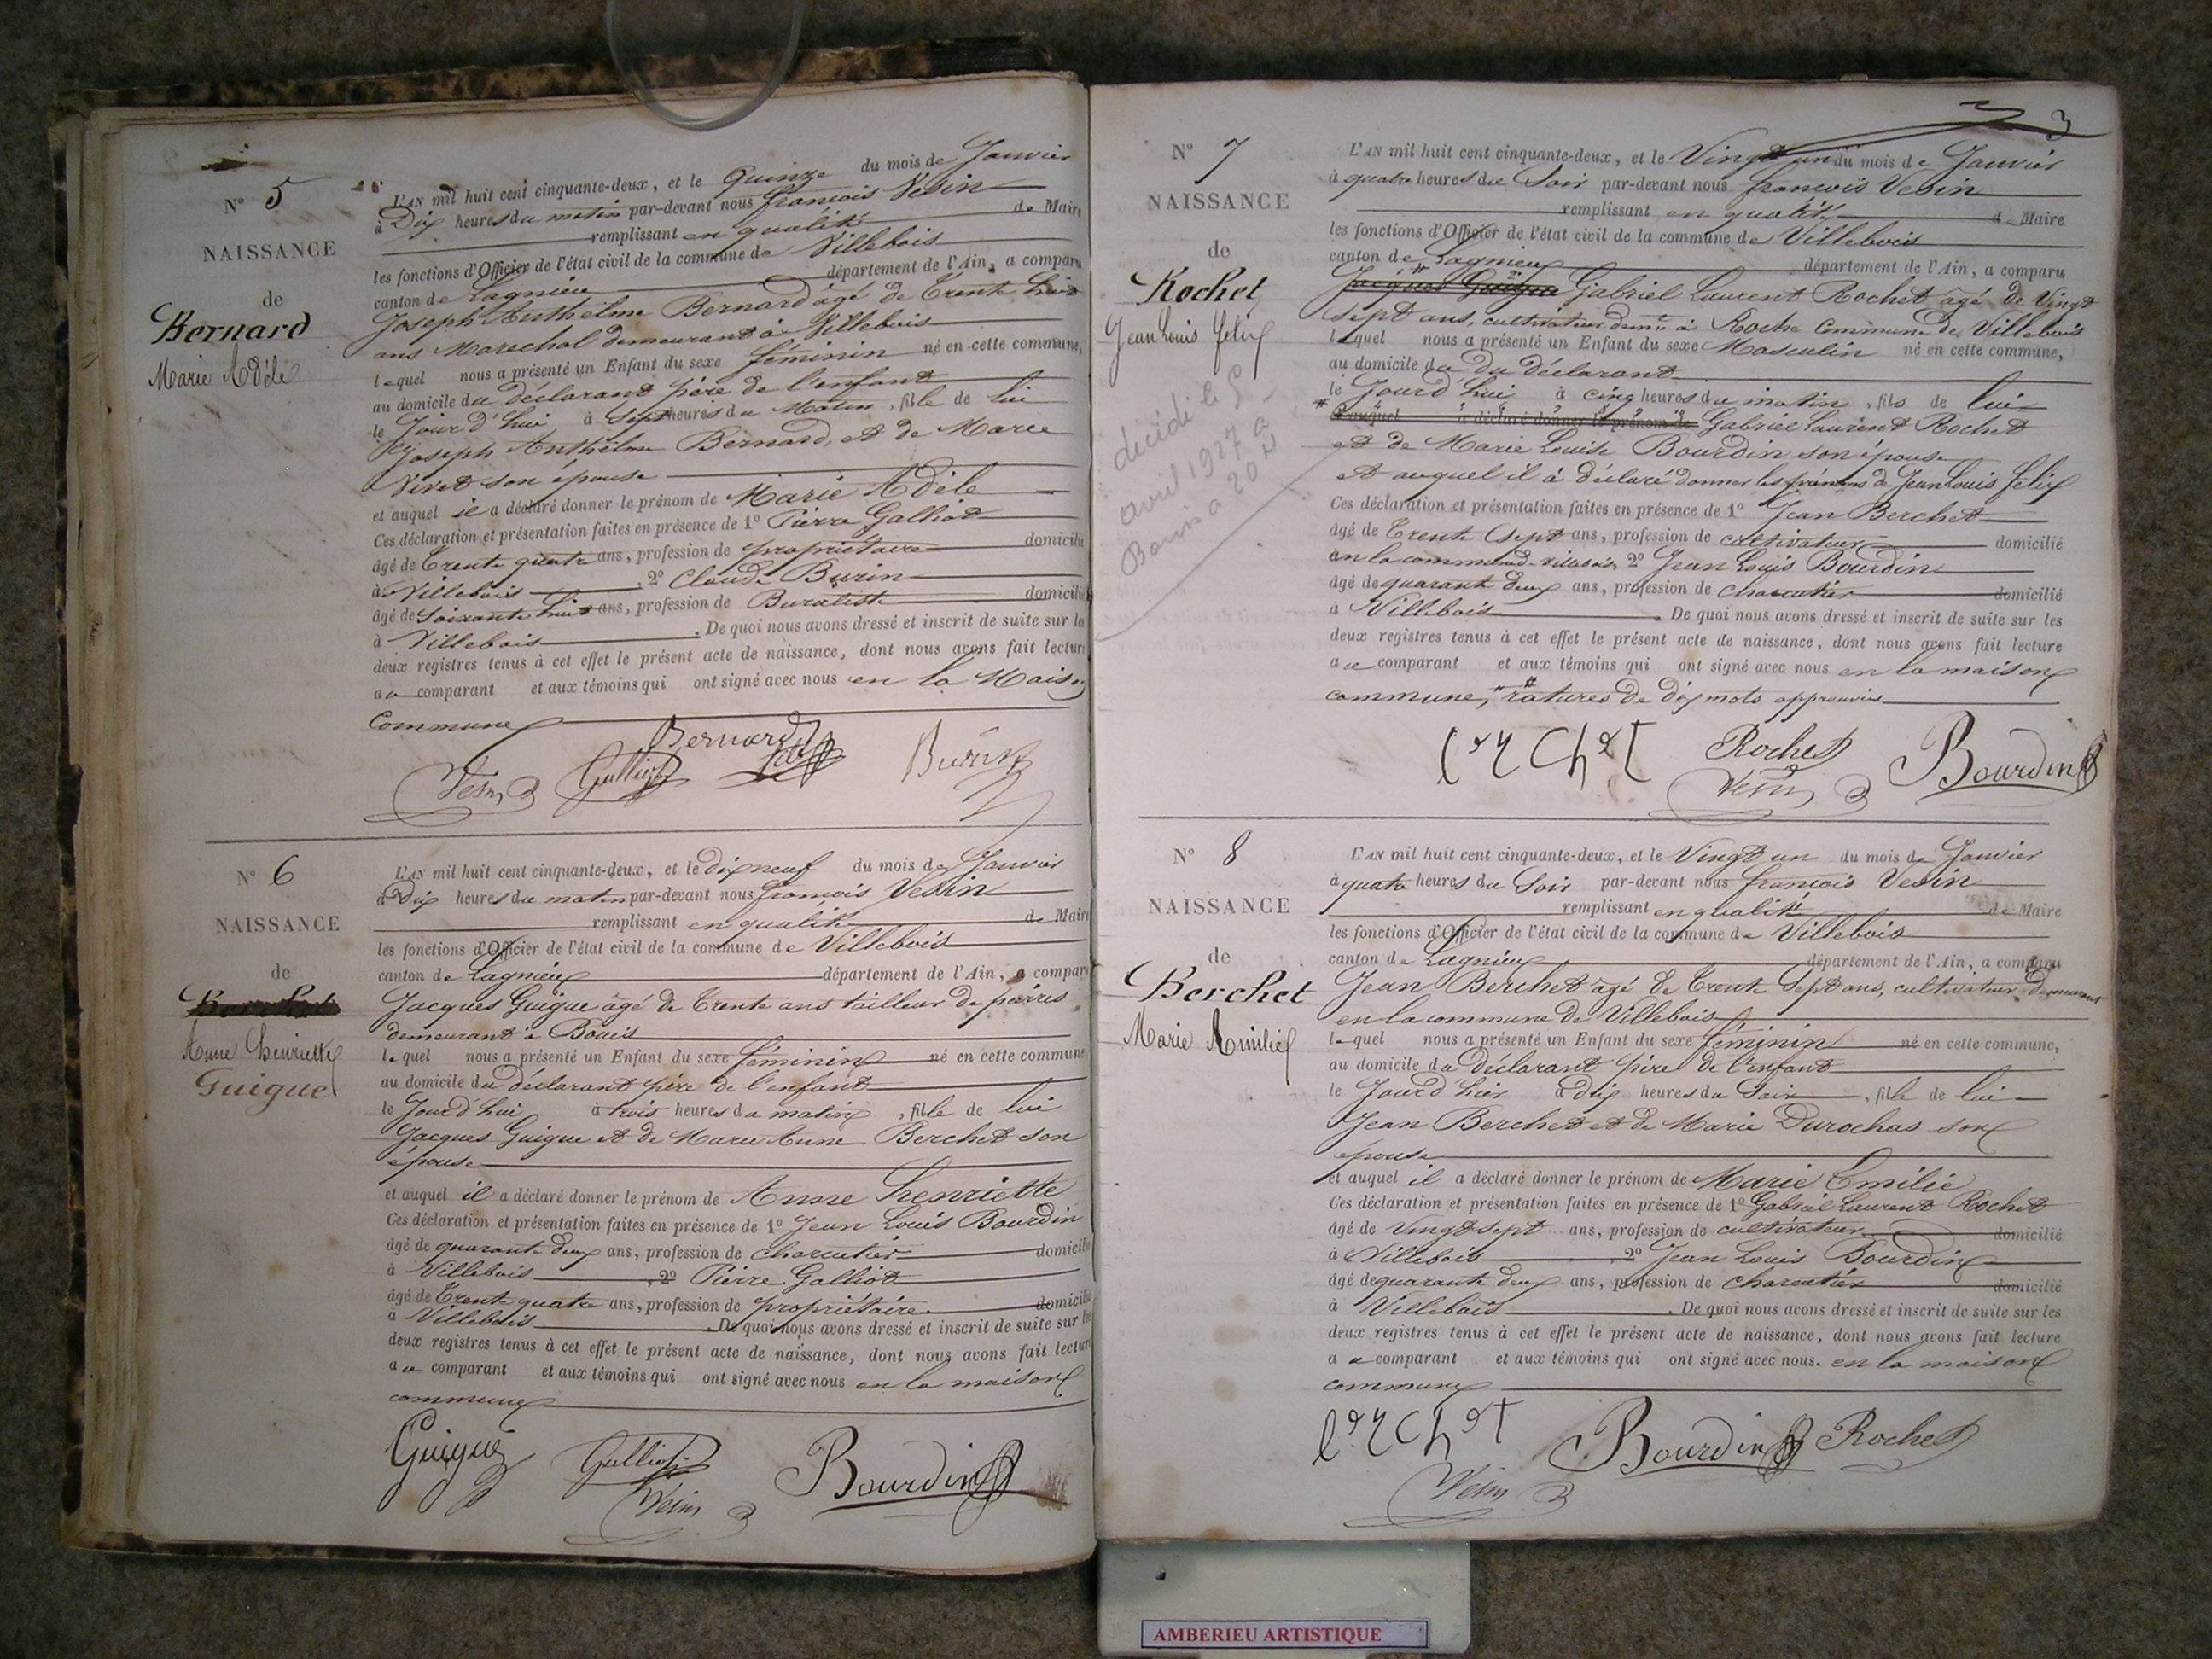 N° 5
NAISSANCE
de
Bernard
Marie Adèle
L'AN mil huit cent cinquante-deux, et le Quinze du mois de Janvier
à Dix heures du matin par-devant nous françois Vesin
remplissant en qualité de Maire
les fonctions d'Officier de l'état civil de la commune de Villebois
canton de Lagnieu département de l'Ain, a comparu
Joseph Anthelme Bernard âgé de Trente huit
ans Marechal demeurant à Villebois
lequel nous a présenté un Enfant du sexe féminin né en cette commune,
au domicile du déclarant père de l'enfant
le Jourd'hui à Sept heures du Matin, fille de lui
Joseph Anthelme Bernard, et de Marie
Vivet son épouse
et auquel il a déclaré donner le prénom de Marie Adèle
Ces déclaration et présentation faites en présence de 1° Pierre Galliot
âgé de Trente quatre ans, profession de propriétaire domicilié
à Villebois, 2° Claude Burin
âgé de Soixante huit ans, profession de Buraliste domicilié
à Villebois. De quoi nous avons dressé et inscrit de suite sur les
deux registres tenus à cet effet le présent acte de naissance, dont nous avons fait lecture
au comparant et aux témoins qui ont signé avec nous en la Maison
Commune
Bernard
Vesin Galliot Burin
N° 6
NAISSANCE
de
Berchet
Anne henriette
Guigue
L'AN mil huit cent cinquante-deux, et le dix neuf du mois de Janvier
à Dix heures du matin par-devant nous françois Vesin
remplissant en qualité de Maire
les fonctions d'Officier de l'état civil de la commune de Villebois
canton de Lagnieu département de l'Ain, a comparu
Jacques Guigue âgé de Trente ans tailleur de pierres
demeurant à Bouis
lequel nous a présenté un Enfant du sexe féminin né en cette commune
au domicile du déclarant père de l'enfant
le Jourd'hui à trois heures du matin, fille de lui
Jacques Guigue et de Marie Anne Berchet son
épouse
et auquel il a déclaré donner le prénom de Anne henriette
Ces déclaration et présentation faites en présence de 1° Jean Louis Bourdin
âgé de quarante deux ans, profession de charcutier domicilié
à Villebois, 2° Pierre Galliot
âgé de Trente quatre ans, profession de propriétaire domicilié
à Villebois. De quoi nous avons dressé et inscrit de suite sur les
deux registres tenus à cet effet le présent acte de naissance, dont nous avons fait lecture
au comparant et aux témoins qui ont signé avec nous en la maison
commune
Guigue Galliot Bourdin
Vesin
3
N° 7
NAISSANCE
de
Rochet
Jean Louis felix
décédé le 5
avril 1927 a
L'AN mil huit cent cinquante-deux, et le Vingt un du mois de Janvier
à quatre heures du Soir par-devant nous françois Vesin
remplissant en qualité de Maire
les fonctions d'Officier de l'état civil de la commune de Villebois
canton de Lagnieu département de l'Ain, a comparu
Jacques Guigue Gabriel Laurent Rochet âgé de Vingt
sept ans, cultivateur demt à Roche Commune de Villebois
lequel nous a présenté un Enfant du sexe Masculin né en cette commune,
au domicile de du déclarant
le Jourd'hui à cinq heures du matin, fils de lui
et auquel a déclaré donner le prénom de Gabriel Laurent Rochet
et de Marie Louise Bourdin son épouse
et auquel il à déclaré donner les prénoms de Jean Louis félix
Ces déclaration et présentation faites en présence de 1° Jean Berchet
âgé de Trente sept ans, profession de cultivateur domicilié
en la commune de villebois, 2° Jean Louis Bourdin
âgé de quarante deux ans, profession de charcutier domicilié
à Villebois. De quoi nous avons dressé et inscrit de suite sur les
deux registres tenus à cet effet le présent acte de naissance, dont nous avons fait lecture
au comparant et aux témoins qui ont signé avec nous en la maison
commune, ratures de dix mots approuvés
berchet Rochet Bourdin
Vesin
N° 8
NAISSANCE
de
Berchet
Marie Emilie
L'AN mil huit cent cinquante-deux, et le Vingt un du mois de Janvier
à quatre heures du Soir par-devant nous françois Vesin
remplissant en qualité de Maire
les fonctions d'Officier de l'état civil de la commune de Villebois
canton de Lagnieu département de l'Ain, a comparu
Jean Berchet agé de Trente Sept ans, cultivateur Demeurant
en la commune de Villebois
lequel nous a présenté un Enfant du sexe féminin né en cette commune,
au domicile du déclarant père de l'enfant
le Jourd'hier à dix heures du Soir, fille de lui
Jean Berchet et de Marie Durochas son
épouse
et auquel il a déclaré donner le prénom de Marie Emilie
Ces déclaration et présentation faites en présence de 1° Gabriel Laurent Rochet
âgé de Vingt sept ans, profession de cultivateur domicilié
à Villebois, 2° Jean Louis Bourdin
âgé de quarante deux ans, profession de charcutier domicilié
à Villebois. De quoi nous avons dressé et inscrit de suite sur les
deux registres tenus à cet effet le présent acte de naissance, dont nous avons fait lecture
au comparant et aux témoins qui ont signé avec nous. en la maison
commune
berchet Bourdin Rochet
Vesin
AMBERIEU ARTISTIQUE